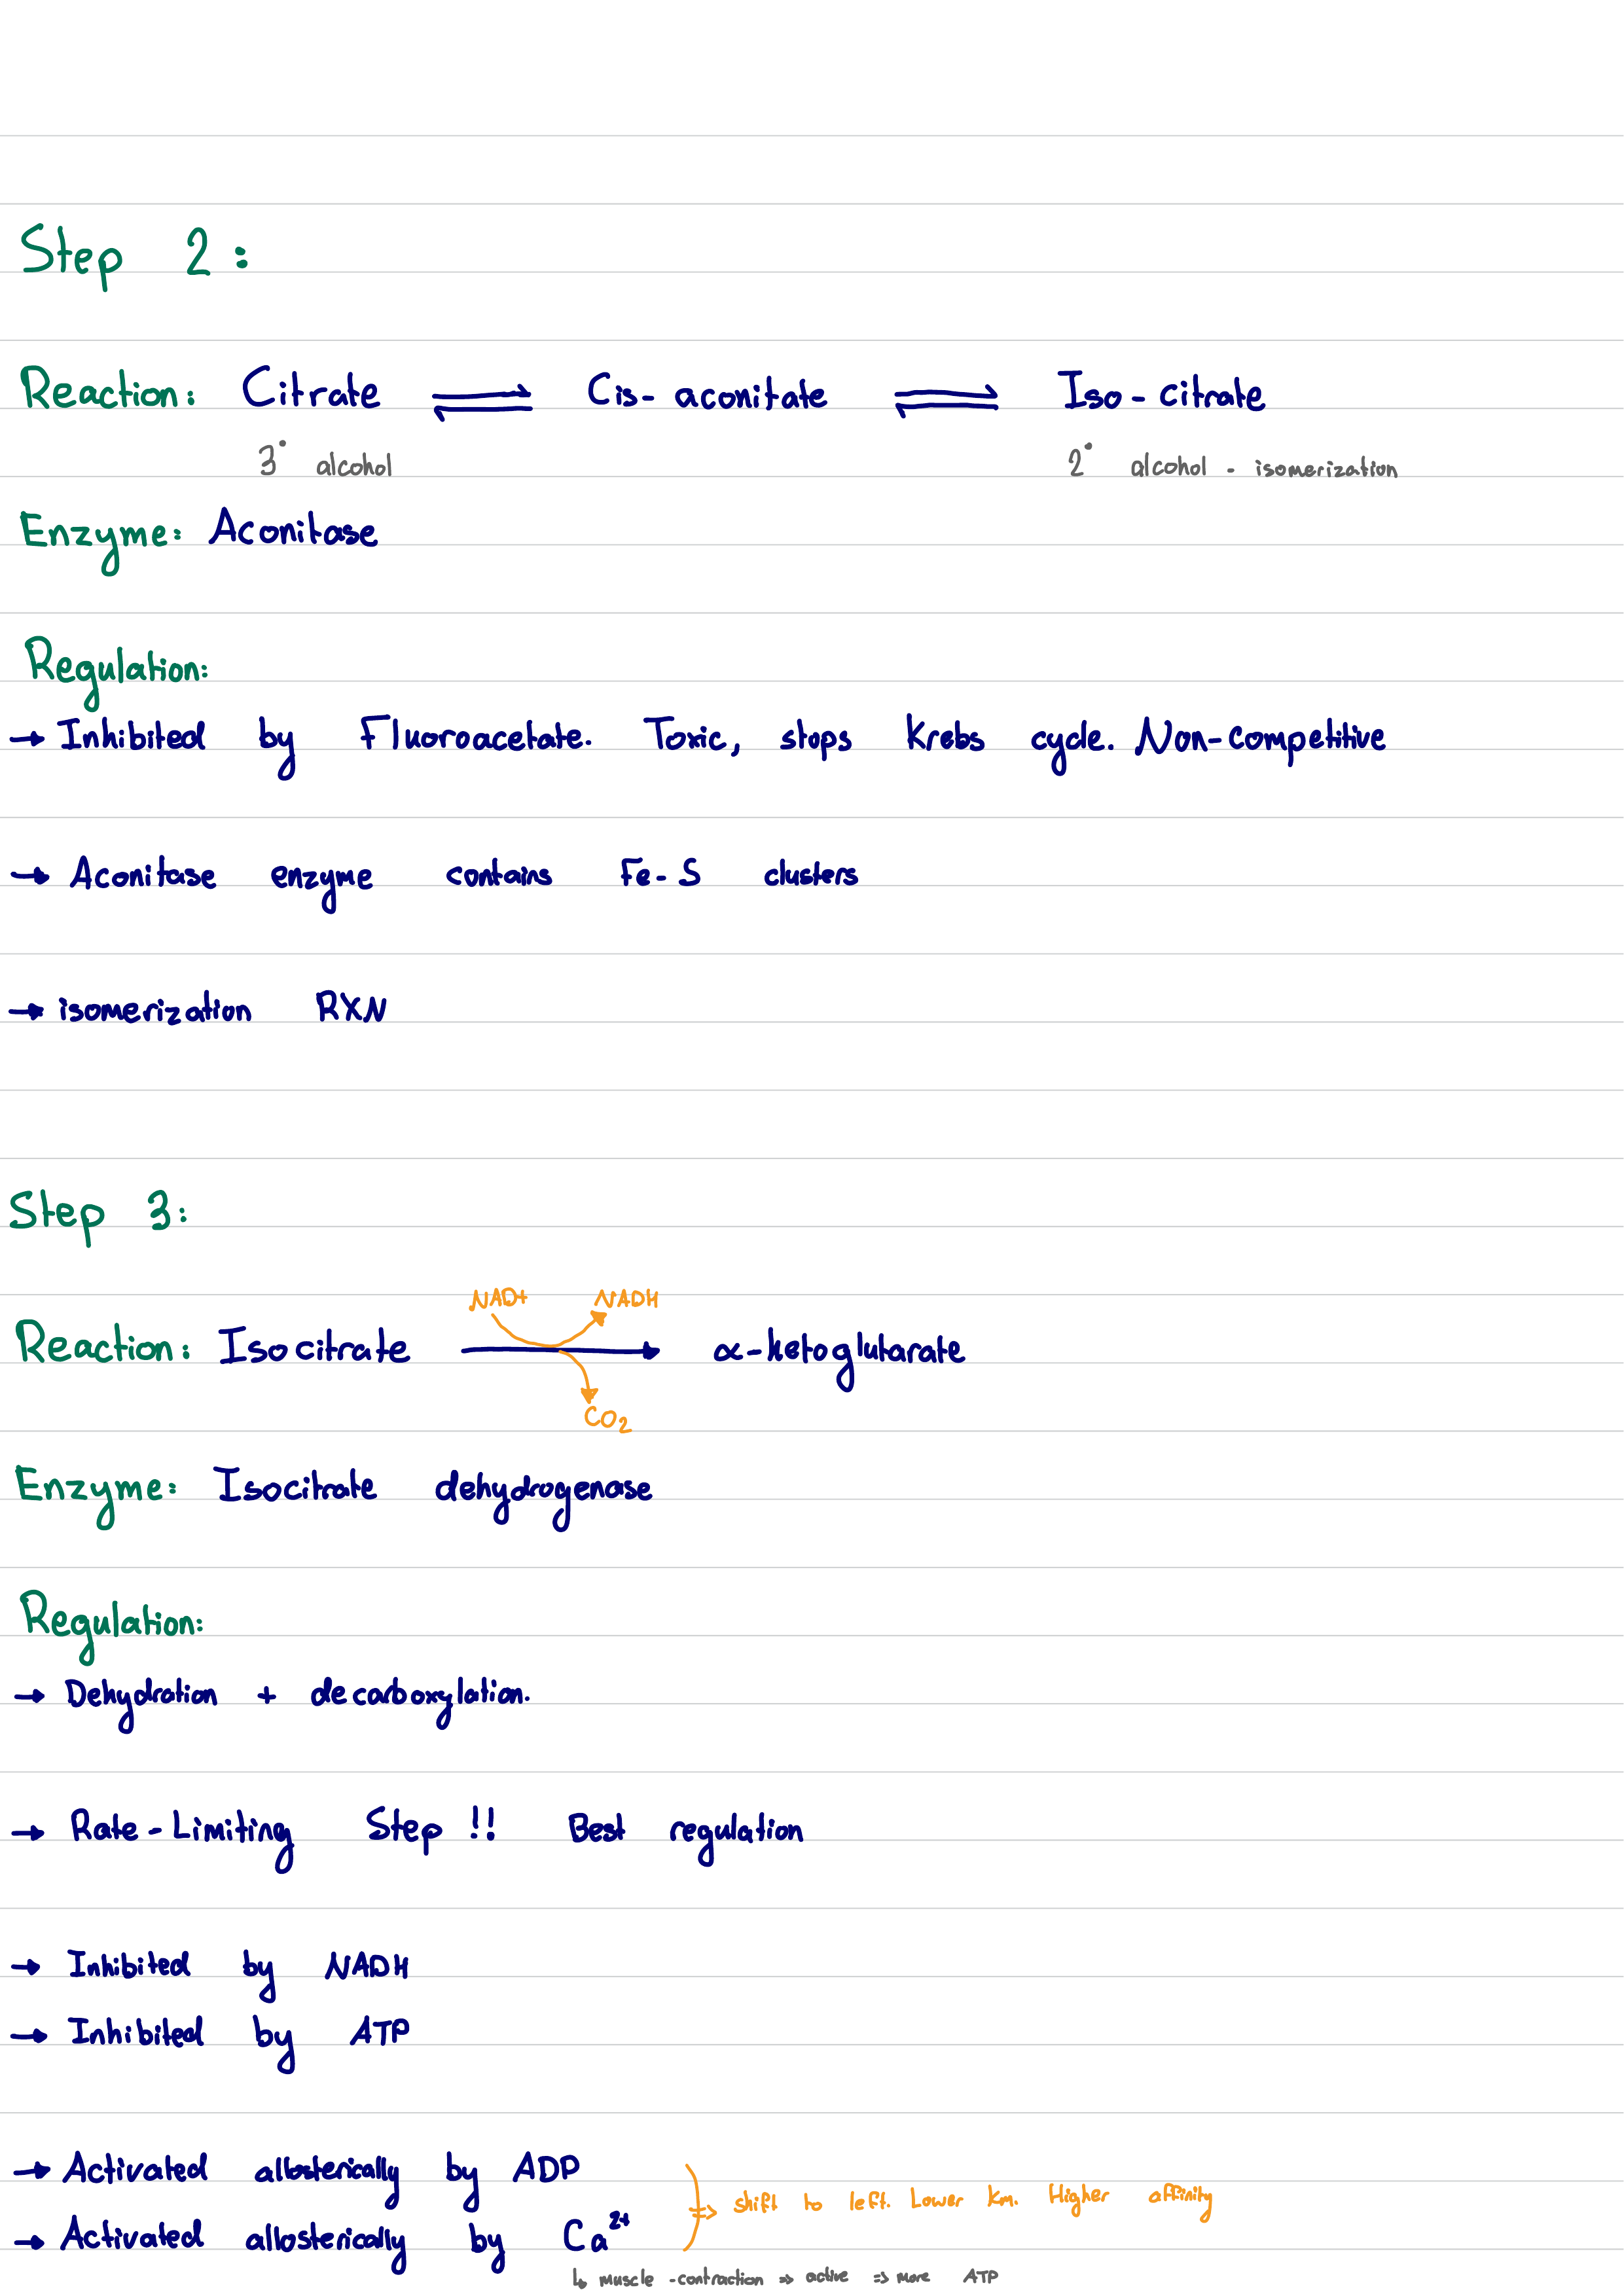 Step 2:
Reaction: Citrate ⇌ Cis-aconitate ⇌ Iso-citrate
3° alcohol 2° alcohol - isomerization
Enzyme: Aconitase
Regulation:
→ Inhibited by Fluoroacetate. Toxic, stops Krebs cycle. Non-competitive
→ Aconitase enzyme contains Fe-S clusters
→ isomerization RXN
Step 3:
NAD+ NADH
Reaction: Isocitrate → α-ketoglutarate
CO₂
Enzyme: Isocitrate dehydrogenase
Regulation:
→ Dehydration + decarboxylation.
→ Rate-Limiting Step !! Best regulation
→ Inhibited by NADH
→ Inhibited by ATP
→ Activated allosterically by ADP
⇒ shift to left. Lower Km. Higher affinity
→ Activated allosterically by Ca²⁺
↳ muscle-contraction ⇒ active ⇒ more ATP